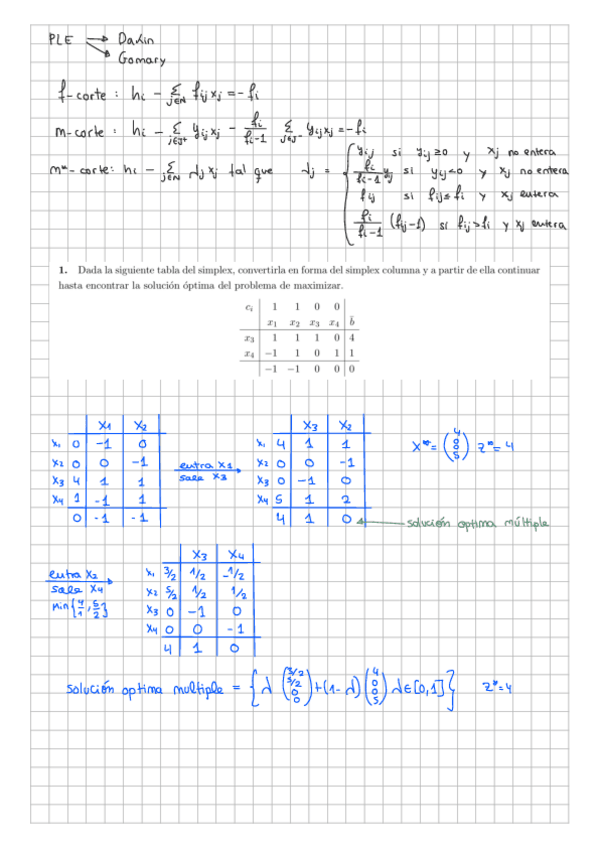 PLE → Dakin
→ Gomary
f-corte : hi - Σ j∈N fij xj = - fi
m-corte : hi - Σ j∈J+ yij xj - fi/(fi-1) Σ j∈J- yij xj = - fi
m*-corte: hi - Σ j∈N dj xj tal que dj =
yij si yij ≥ 0 y xj no entera
fi/(fi-1) yij si yij < 0 y xj no entera
fij si fij ≤ fi y xj entera
fi/(fi-1) (fij-1) si fij > fi y xj entera
1. Dada la siguiente tabla del simplex, convertirla en forma del simplex columna y a partir de ella continuar
hasta encontrar la solución óptima del problema de maximizar.
ci 1 1 0 0
x1 x2 x3 x4 b̄
x3 1 1 1 0 4
x4 −1 1 0 1 1
−1 −1 0 0 0
x1 x2
x1 0 -1 0
x2 0 0 -1
x3 4 1 1
x4 1 -1 1
0 -1 -1
entra x1
sale x3
x3 x2
x1 4 1 1
x2 0 0 -1
x3 0 -1 0
x4 5 1 2
4 1 0
x* = (4 0 0 5) z* = 4
solución optima múltiple
entra x2
sale x4
min{4/1, 5/2}
x3 x4
x1 3/2 1/2 -1/2
x2 5/2 1/2 1/2
x3 0 -1 0
x4 0 0 -1
4 1 0
solución optima multiple = { d (3/2 5/2 0 0) + (1-d) (4 0 0 5) d∈[0,1] } z*=4